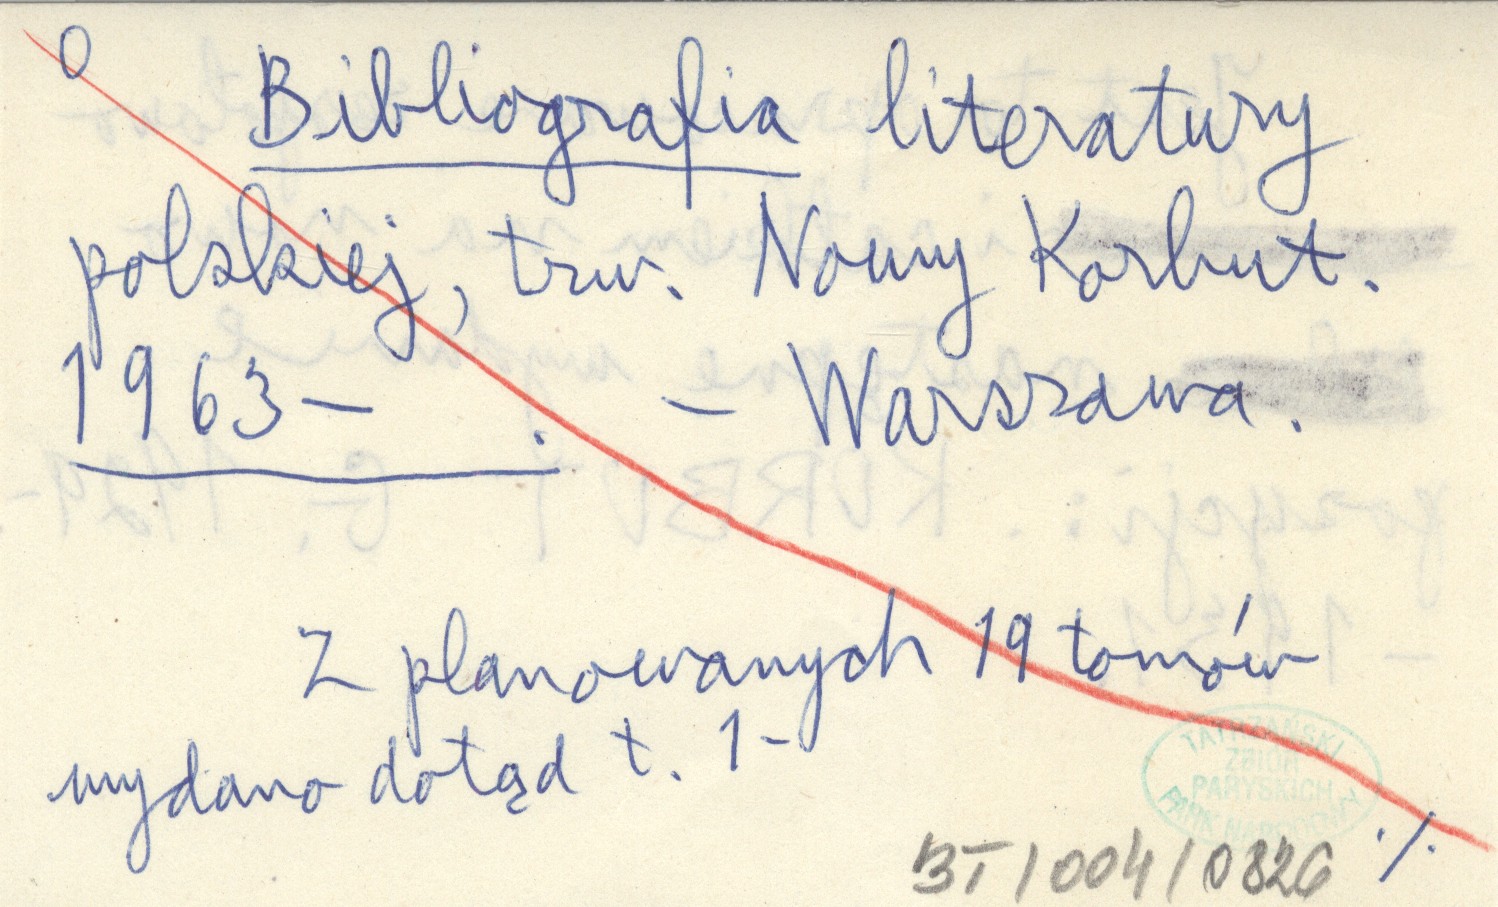 O
Bibliografia literatury
polskiej, tzw. Nowy Korbut.
1963- . - Warszawa.
Z planowanych 19 tomów
wydano dotąd t. 1-
TATRZAŃSKI
PARYSKICH
PARK NARODOWY
BT/004/0826 ./.